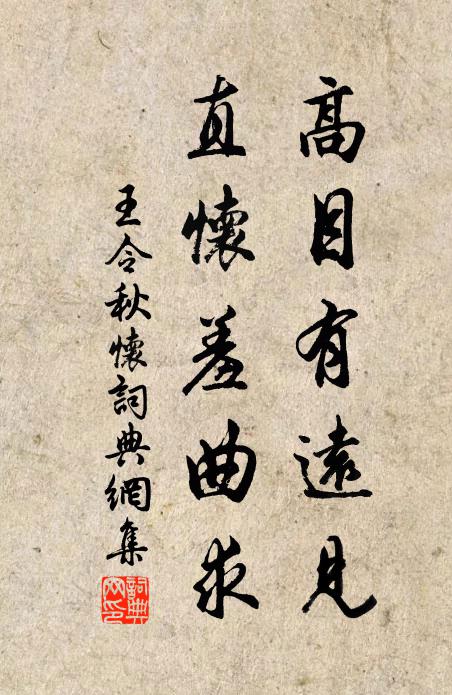 高目有遠見
直懷羞曲求
王令秋懷詞典網集
詞典網印